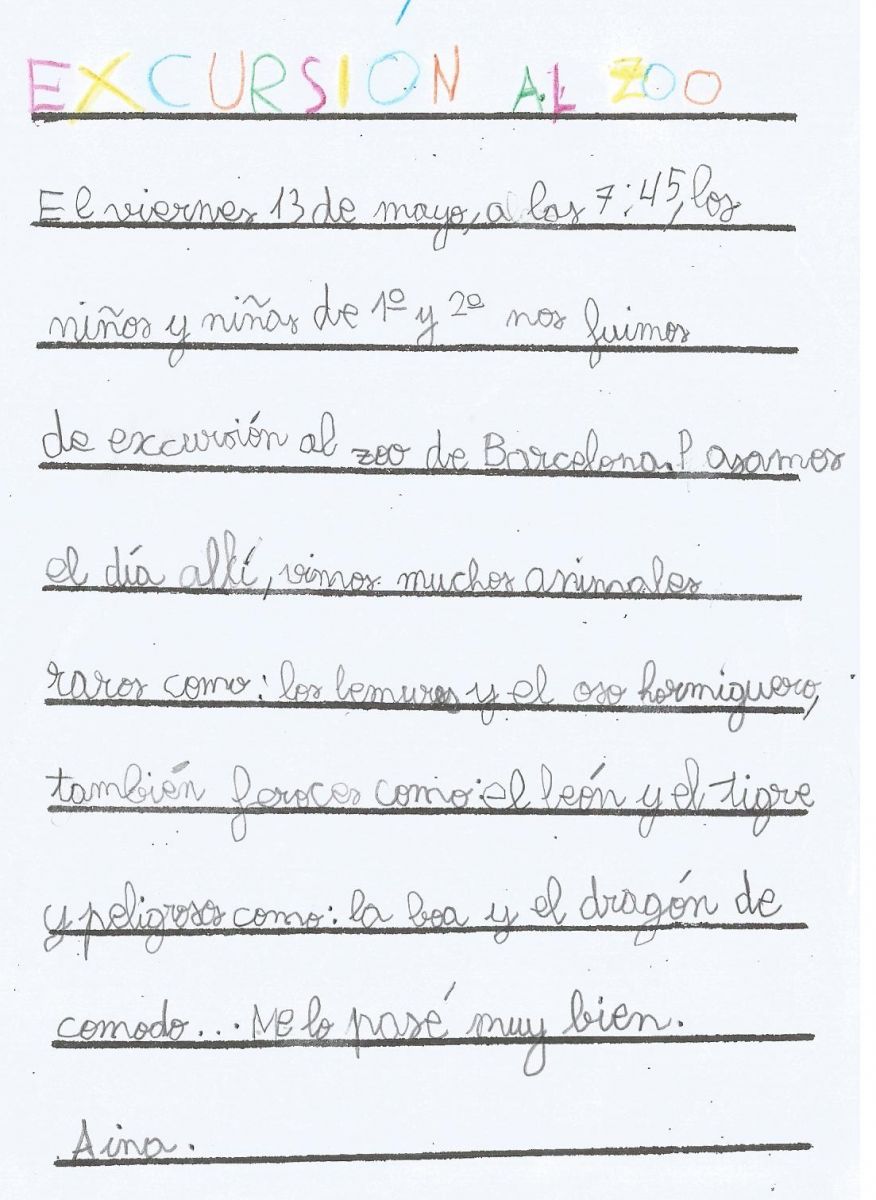 EXCURSIÓN AL ZOO
El viernes 13 de mayo, a las 7:45, los
niños y niñas de 1º y 2º nos fuimos
de excursión al zoo de Barcelona. Pasamos
el día allí, vimos muchos animales
raros como: los lemures y el oso hormiguero,
también feroces como: el león y el tigre
y peligrosos como: la boa y el dragón de
comodo... Me lo pasé muy bien.
Aina.